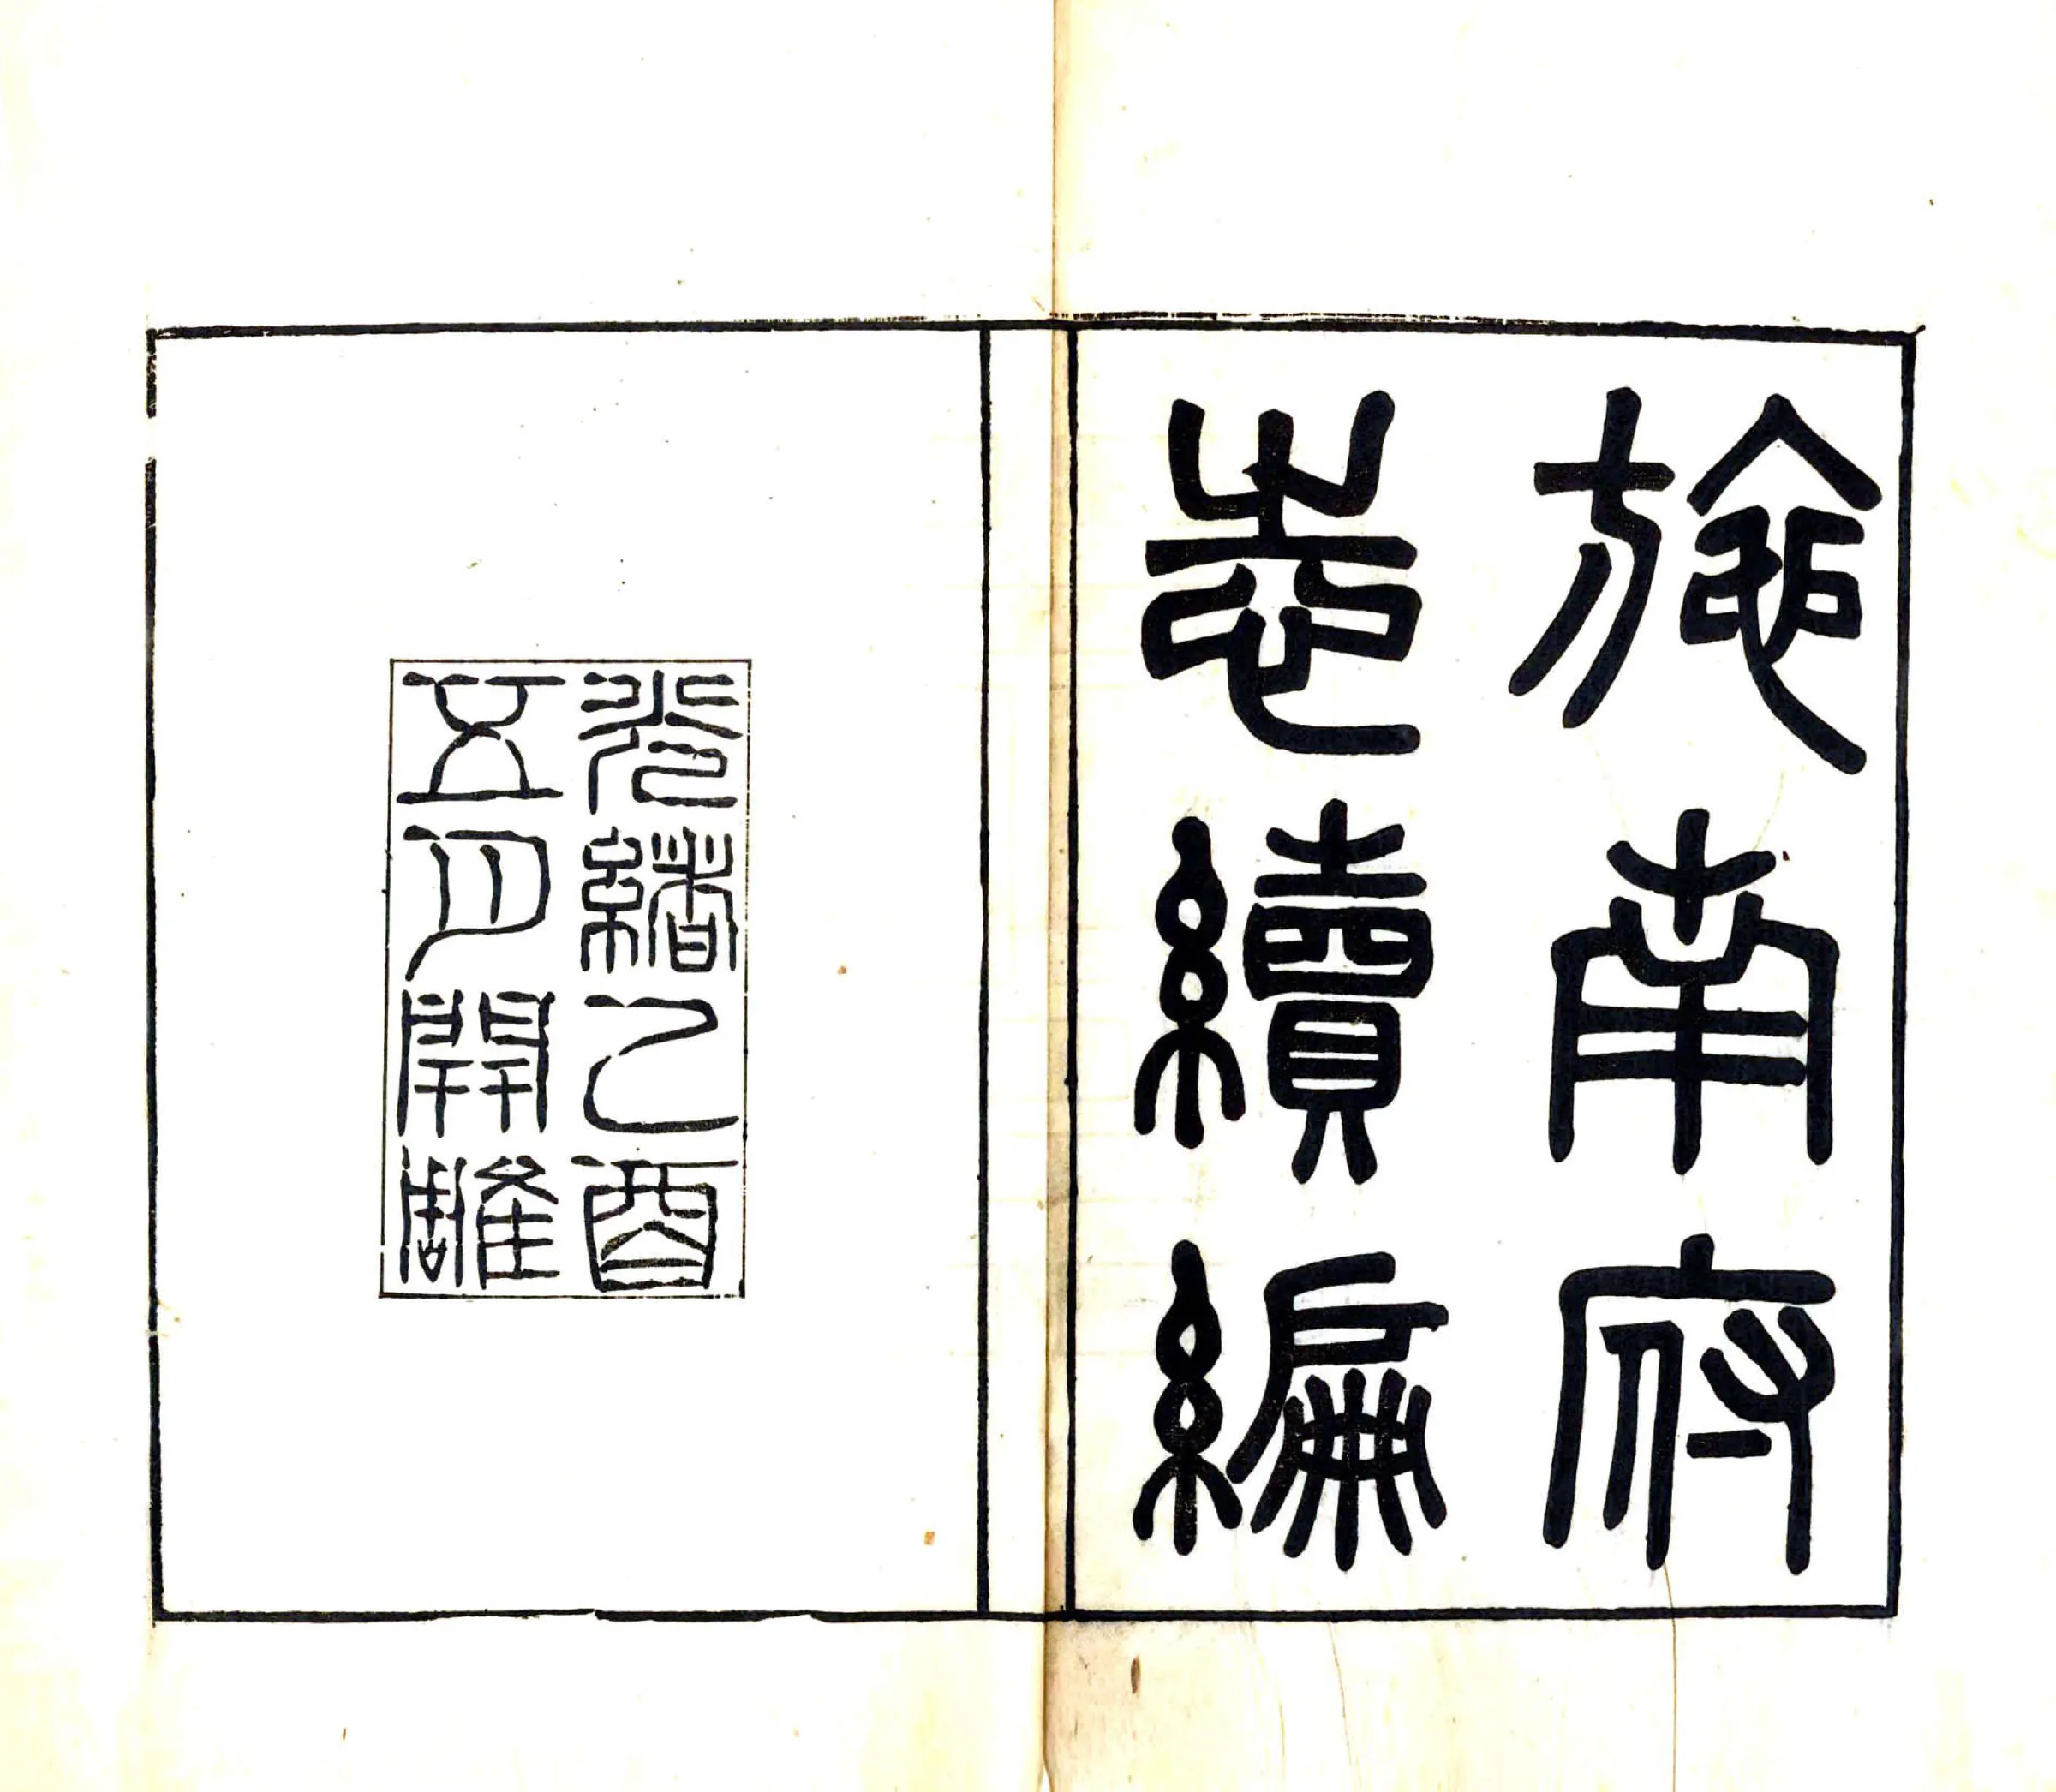 施南府
志續編
光緒乙酉
五月開雕